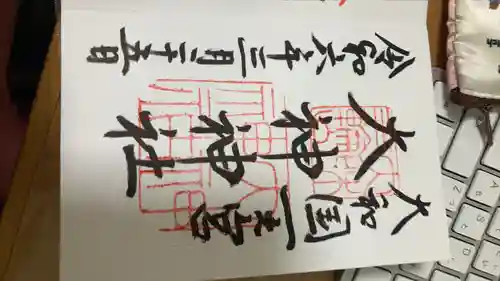 大和国一之宮
大神神社
令和六年二月二十五日